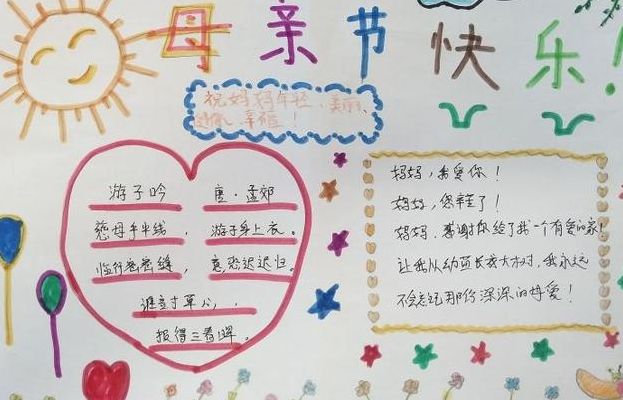 母亲节快乐！
祝妈妈年轻、美丽、
健康、幸福！
游子吟 唐·孟郊
慈母手中线， 游子身上衣。
临行密密缝， 意恐迟迟归。
谁言寸草心，
报得三春晖。
妈妈，我爱你！
妈妈，您辛苦了！
妈妈，感谢你给了我一个有爱的家！
让我从幼苗长成大树，我永远
不会忘记那份深深的母爱！